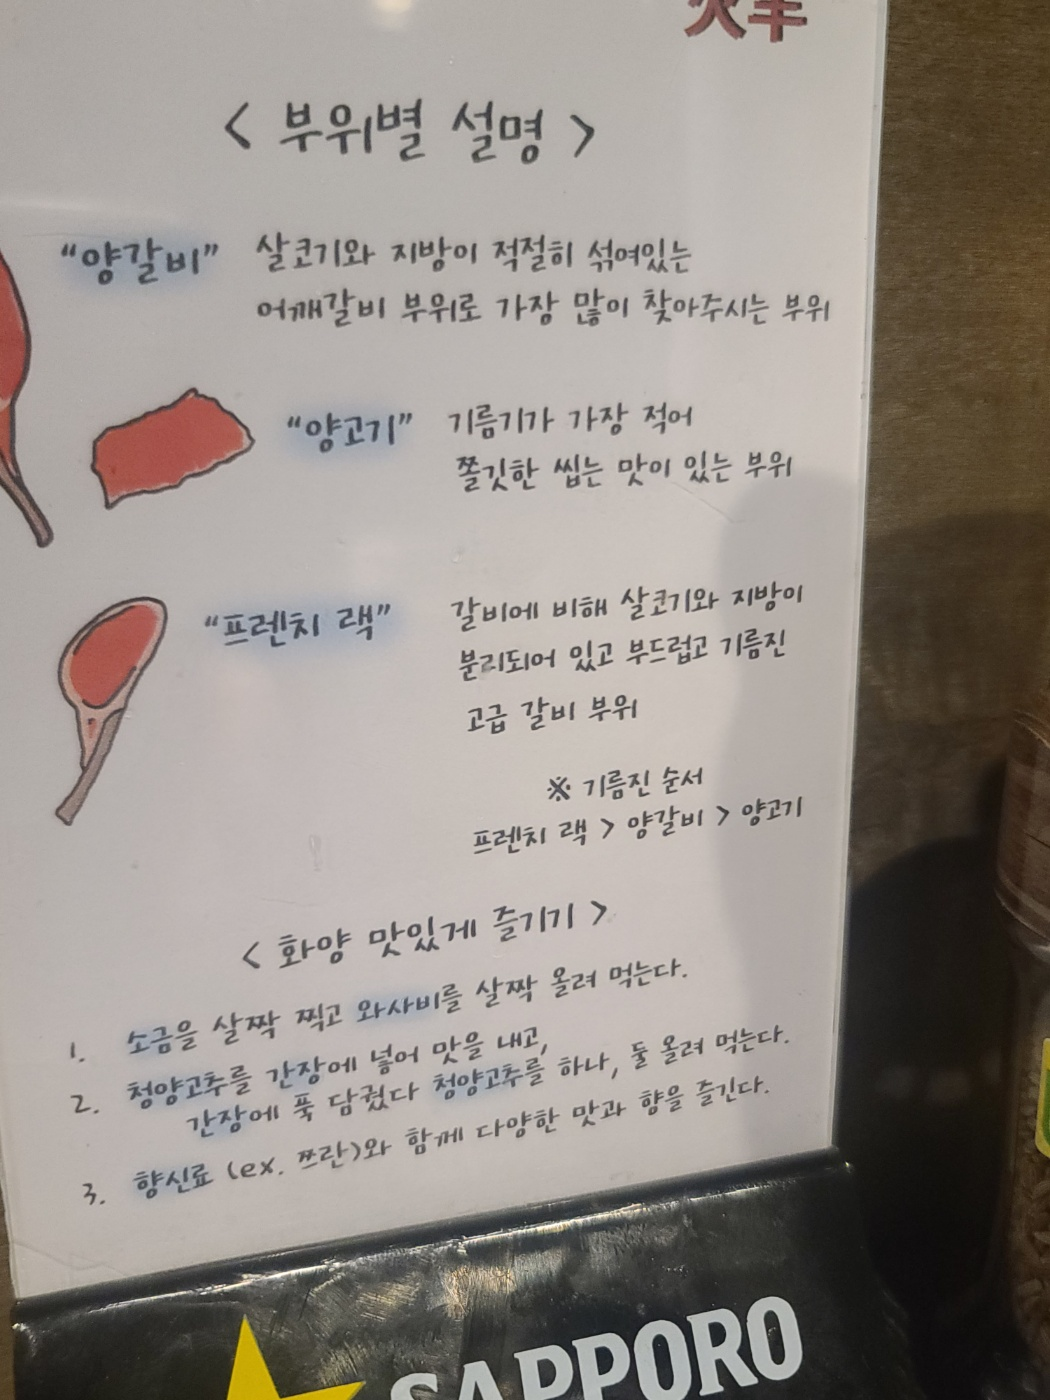 火羊
< 부위별 설명 >
“양갈비” 살코기와 지방이 적절히 섞여있는
어깨갈비 부위로 가장 많이 찾아주시는 부위
“양고기” 기름기가 가장 적어
쫄깃한 씹는 맛이 있는 부위
“프렌치 랙” 갈비에 비해 살코기와 지방이
분리되어 있고 부드럽고 기름진
고급 갈비 부위
※ 기름진 순서
프렌치 랙 > 양갈비 > 양고기
< 화양 맛있게 즐기기 >
1. 소금을 살짝 찍고 와사비를 살짝 올려 먹는다.
2. 청양고추를 간장에 넣어 맛을 내고,
간장에 푹 담궜다 청양고추를 하나, 둘 올려 먹는다.
3. 향신료 (ex. 쯔란)와 함께 다양한 맛과 향을 즐긴다.
SAPPORO